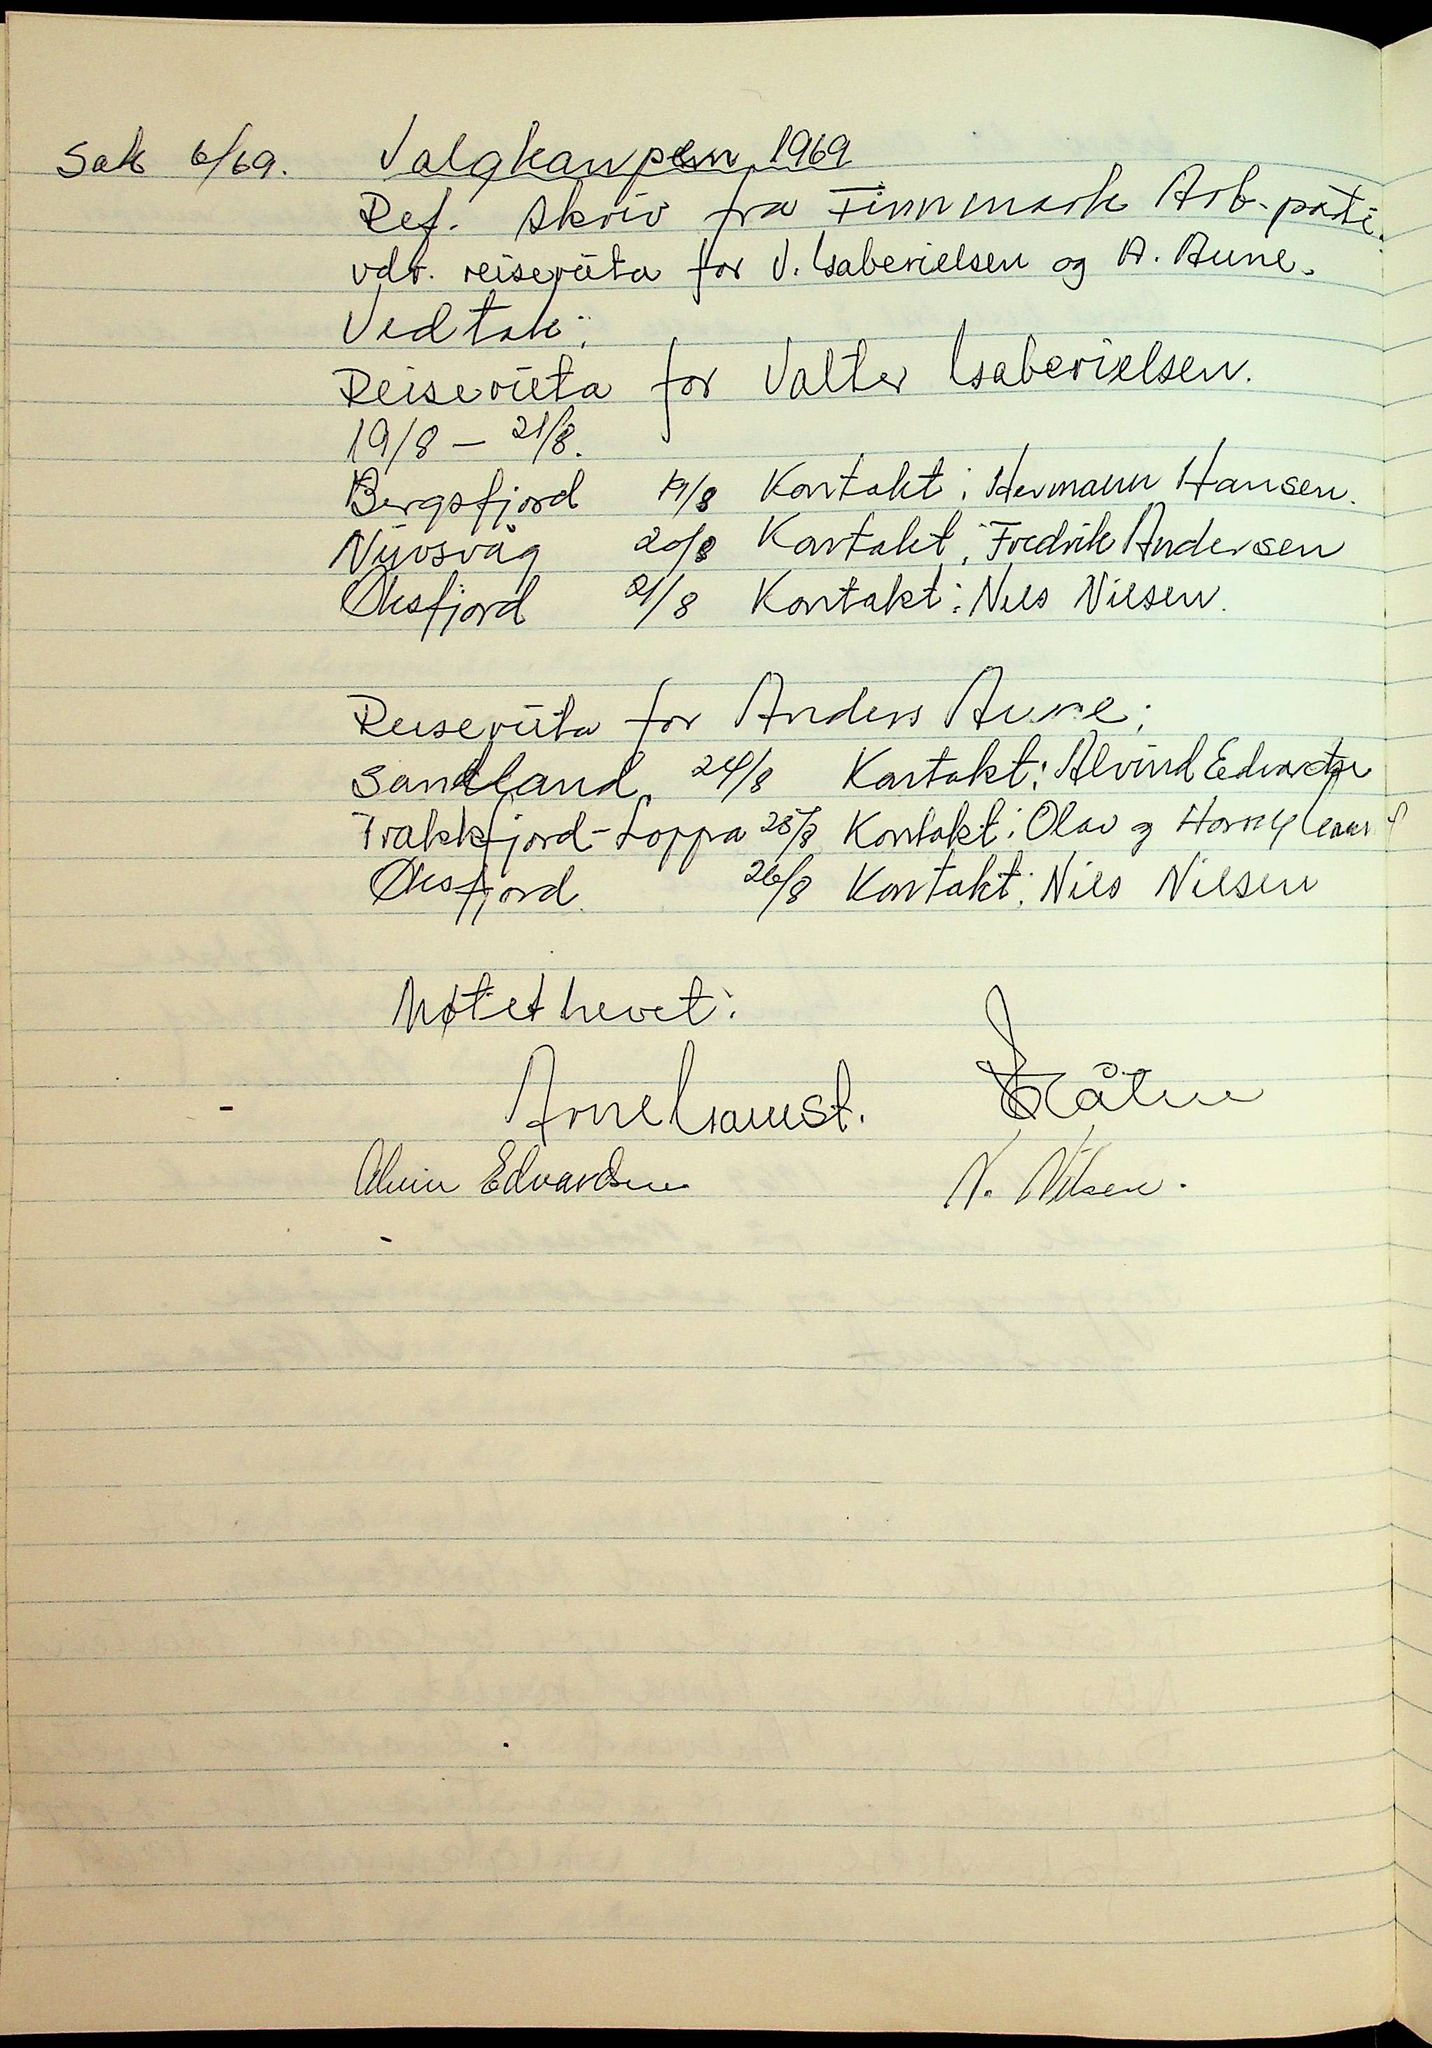 Sak 6/69. Valgkampen 1969
Ref. skriv fra Finnmark Arb-parti.
vdr. reiseruta for V. Gabrielsen og A. Aune.
Vedtak:
Reiseruta for Valter Gabrielsen.
19/8 - 21/8.
Bergsfjord 19/8 Kontakt: Hermann Hansen.
Nuvsvåg 20/8 Kontakt: Fredrik Andersen
Øksfjord 21/8 Kontakt: Nils Nilsen.
Reiseruta for Anders Aune:
Sandland. 24/8 Kontakt: Alvind Edvardsen
Trakkfjord-Loppa 25/8 Kontakt: Olav og
Øksfjord. 26/8 Kontakt: Nils Nilsen
Møtet hevet:
Arne
Edvardsen N. Nilsen.